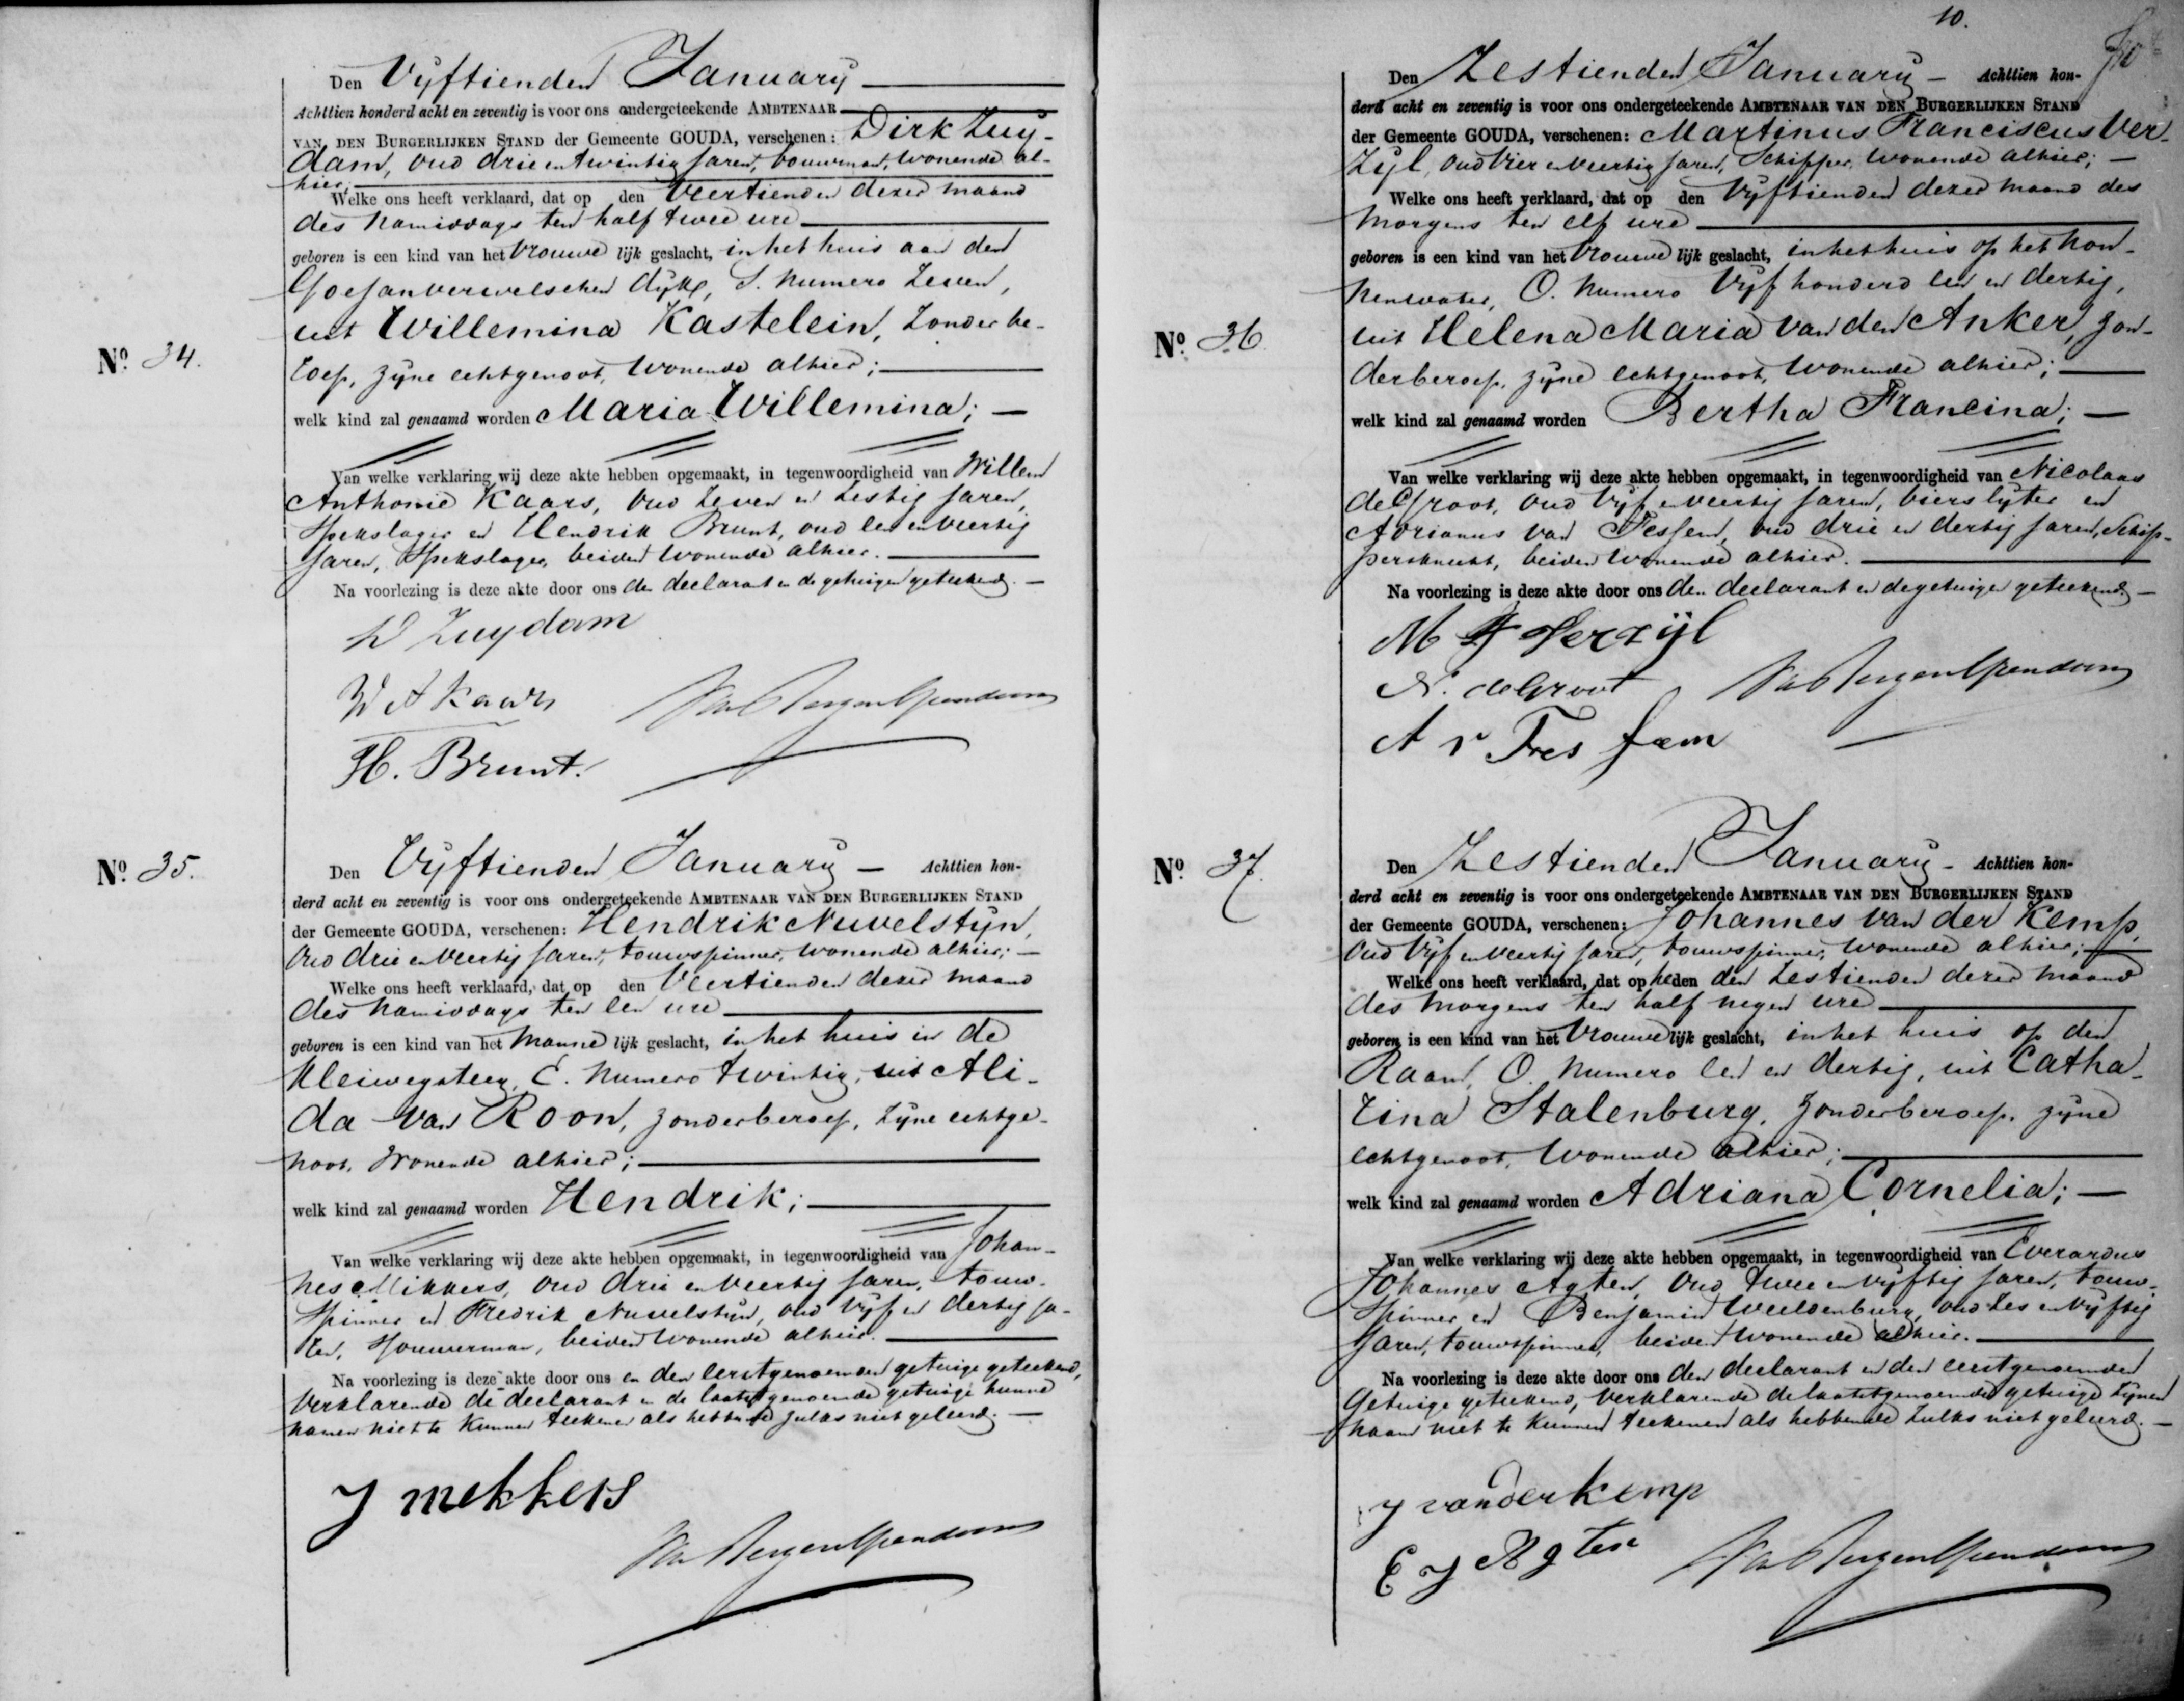 Nº. 34.
Den Vyftienden January
Achttien honderd acht en zeventig is voor ons ondergeteekende AMBTENAAR
VAN DEN BURGERLIJKEN STAND der Gemeente GOUDA, verschenen: Dirk Zuy-
dam, oud drie en twintig jaren, bouwman, wonende al-
hier;
Welke ons heeft verklaard, dat op den Veertienden dezer maand
des namiddags ten half twee ure
geboren is een kind van het Vrouwe lijk geslacht, in het huis aan den
Goejanverwelschen dyk, S. numero Zeven,
uit Willemina Kastelein, Zonder be-
roep, zyne echtgenoot, wonende alhier;
welk kind zal genaamd worden Maria Willemina;
Van welke verklaring wij deze akte hebben opgemaakt, in tegenwoordigheid van Willem
Anthonie Kaars, oud Zeven en Zestig jaren,
Spekslager en Hendrik Brunt, oud een en veertig
jaren, Spekslager, beiden wonende alhier.
Na voorlezing is deze akte door ons den declarant en de getuigen geteekend.
D Zuydam
W A Kaars
H. Brunt.
Nº. 35.
Den Vyftienden January Achttien hon-
derd acht en zeventig is voor ons ondergeteekende AMBTENAAR VAN DEN BURGERLIJKEN STAND
der Gemeente GOUDA, verschenen: Hendrik Nuvelstyn,
oud drie en veertig jaren, touwspinner, wonende alhier;
Welke ons heeft verklaard, dat op den Veertienden dezer maand
des namiddags ten een ure
geboren is een kind van het Manne lijk geslacht, in het huis in de
Kleiwegsteeg, E. numero twintig, uit Ali-
da van Roon, zonder beroep, zyne echtge-
noot, wonende alhier;
welk kind zal genaamd worden Hendrik;
Van welke verklaring wij deze akte hebben opgemaakt, in tegenwoordigheid van Johan-
nes Mikkers, oud drie en veertig jaren, touw-
spinner en Fredrik Nuvelstyn, oud vyf en dertig ja-
ren, Sjouwerman, beiden wonende alhier.
Na voorlezing is deze akte door ons en den eerstgenoemden getuige geteekend,
Verklarende de declarant en de laatstgenoemde getuige hunne
namen niet te kunnen teekenen als hebbende zulks niet geleerd.
J mekkers
10.
Nº. 36.
Den Zestienden January Achttien hon-
derd acht en zeventig is voor ons ondergeteekende AMBTENAAR VAN DEN BURGERLIJKEN STAND
der Gemeente GOUDA, verschenen: Martinus Franciscus Ver-
zyl, oud vier en veertig jaren, Schipper, wonende alhier;
Welke ons heeft verklaard, dat op den Vyftienden dezer maand des
morgens ten elf ure
geboren is een kind van het Vrouwe lijk geslacht, in het huis op het Non-
nenwater, O. numero Vyf honderd een en dertig,
uit Helena Maria van den Anker, zon-
der beroep, zyne echtgenoot, wonende alhier;
welk kind zal genaamd worden Bertha Francina;
Van welke verklaring wij deze akte hebben opgemaakt, in tegenwoordigheid van Nicolaas
de Groot, oud vyf en veertig jaren, bierslyter en
Adrianus van Fessem, oud drie en dertig jaren, Schip-
persknecht, beiden wonende alhier.
Na voorlezing is deze akte door ons den declarant en de getuigen geteekend
M F Verzijl
N. de Groot
A v Fres sem
Nº. 37.
Den Zestienden January Achttien hon-
derd acht en zeventig is voor ons ondergeteekende AMBTENAAR VAN DEN BURGERLIJKEN STAND
der Gemeente GOUDA, verschenen: Johannes van der Kemp,
oud vyf en veertig jaren, touwspinner, wonende alhier;
Welke ons heeft verklaard, dat op heden den Zestienden dezer maand
des morgens ten half negen ure
geboren is een kind van het Vrouwe lijk geslacht, in het huis op den
Raam, O. numero een en dertig, uit Catha-
rina Stalenburg, zonder beroep, zyne
echtgenoot, wonende alhier;
welk kind zal genaamd worden Adriana Cornelia;
Van welke verklaring wij deze akte hebben opgemaakt, in tegenwoordigheid van Everardus
Johannes Agten, oud twee en vyftig jaren, touw-
spinner en Benjamin Weeldenburg, oud zes en vyftig
jaren, touwspinner, beiden wonende alhier.
Na voorlezing is deze akte door ons den declarant en den eerstgenoemden
getuige geteekend, verklarende de laatstgenoemde getuige zynen
naam niet te kunnen teekenen als hebbende zulks niet geleerd.
J van der kemp
E J Agten